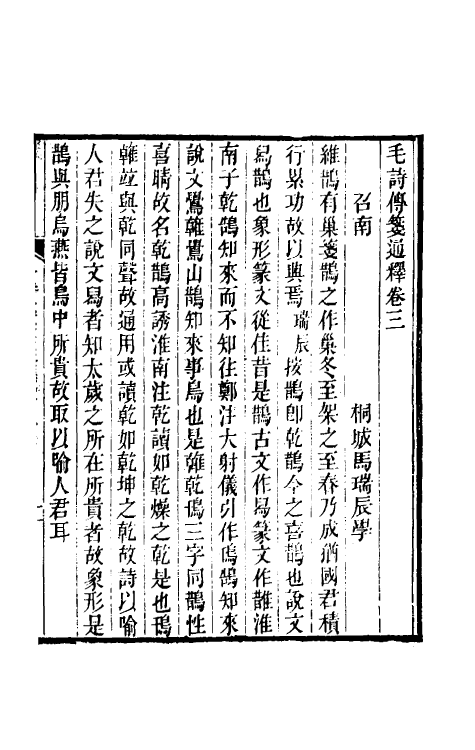 毛詩傳箋通釋卷三
召南 桐城馬瑞辰學
維鵲有巢箋鵲之作巢冬至架之至春乃成猶國君積
行累功故以興焉瑞辰按鵲卽乾鵲今之喜鵲也說文
舄鵲也象形篆文從隹昔是鵲古文作舄篆文作䧿淮
南子乾鵠知來而不知往鄭注大射儀引作鳱鵠知來
說文鷽雗鷽山鵲知來事鳥也是雗乾鳱三字同鵲性
喜晴故名乾鵲高誘淮南注乾讀如乾燥之乾是也鳱
雗竝與乾同聲故通用或讀乾如乾坤之乾故詩以喻
人君失之說文舄者知太歲之所在所貴者故象形是
鵲與朋烏燕皆鳥中所貴故取以喻人君耳